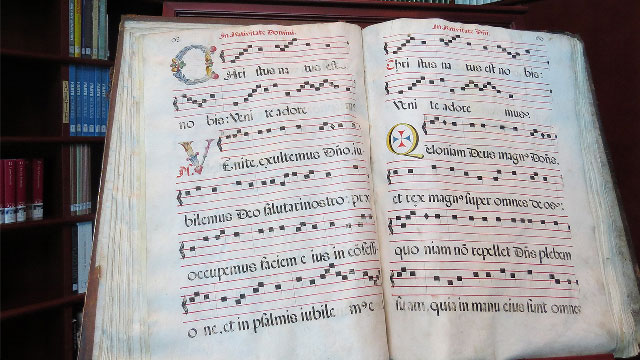 In Nativitate Domini.
Chri stus na tus est
no bis: Veni te adore
Venite, exultemus Dño, iu
bilemus Deo salutari nostro: præ
occupemus faciem e ius in cōfess
o ne, et in psalmis iubile m⁹ e
In Nativitate Dñi.
Chri stus na tus est no bis:
Veni te adore mus.
Quoniam Deus magn⁹ Dñs,
et rex magn⁹ super omnes deos:
quo niam nō repellet Dñs plebem
suam, quia in manu eius sunt omnes